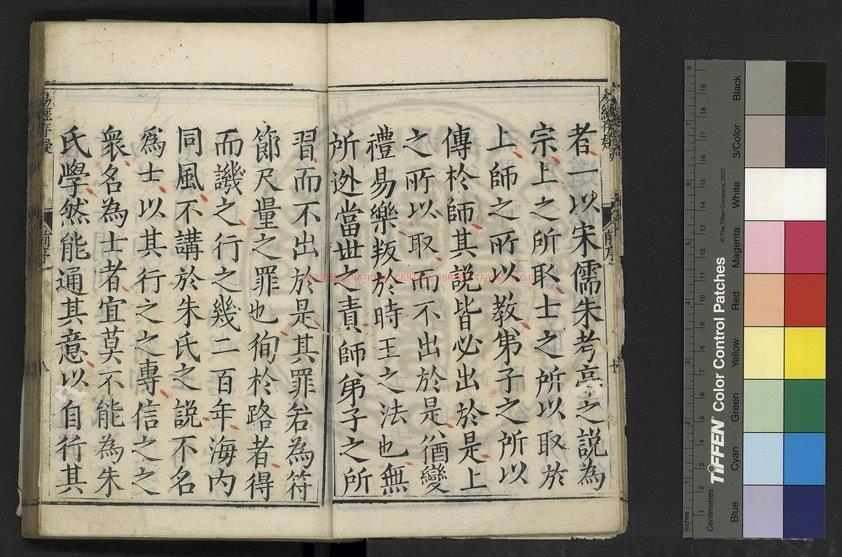 者一以宋儒朱考亭之說為
宗上之所取士之所以取於
上師之所以教弟子之所以
傳於師其說皆必出於是上
之所以取而不出於是猶變
禮易樂叛於時王之法也無
所逃當世之責師弟子之所
習而不出於是其罪若為符
節尺量之罪也徇於路者得
而譏之行之幾二百年海內
同風不講於朱氏之說不名
為士以其行之之專信之之
衆名為士者宜莫不能為朱
氏學然能通其意以自行其
易經
前序
八
TIFFEN Color Control Patches
© The Tiffen Company, 2007
Centimetres
Inches
Blue
Cyan
Green
Yellow
Red
Magenta
White
3/Color
Black